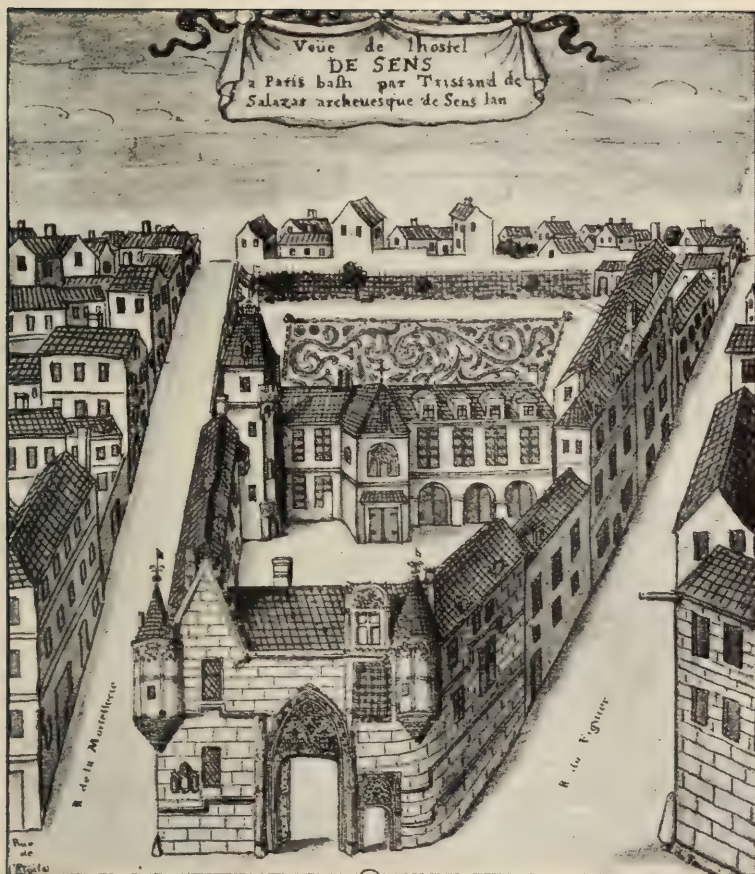 Veüe de lhostel
DE SENS
a Paris basti par Tristand de
Salazar archeuesque de Sens lan
R de la Mortellerie
R du Figuier
Rue
de
l'Etoile